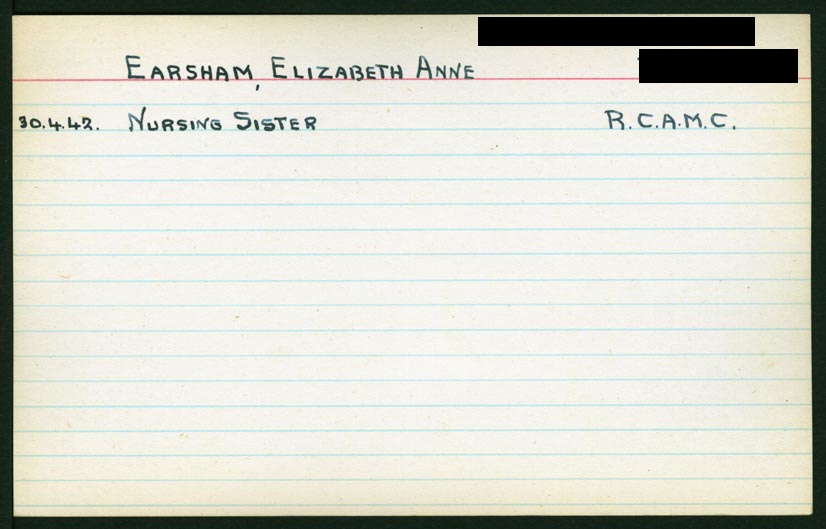 EARSHAM, ELIZABETH ANNE
30.4.42. NURSING SISTER R.C.A.M.C.